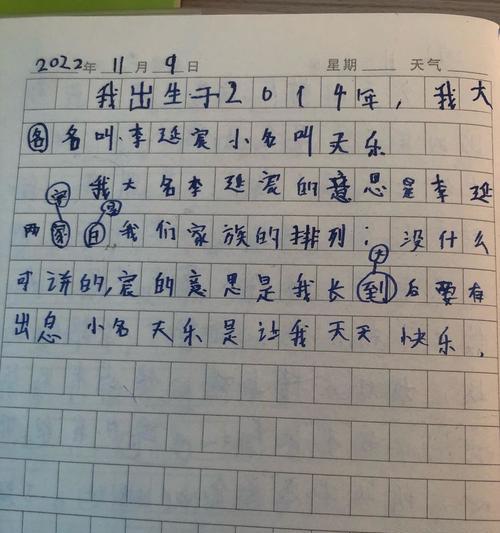 2022年 11月 9日 星期 天气
我出生于2014年，我大
各名叫李延宸小名叫天乐
我大名李延宸的意思是李延
字 是
两家自我们家族的排列；没什么
大
可讲的，宸的意思是我长到后要有
出息 小名天乐是让我天天快乐，